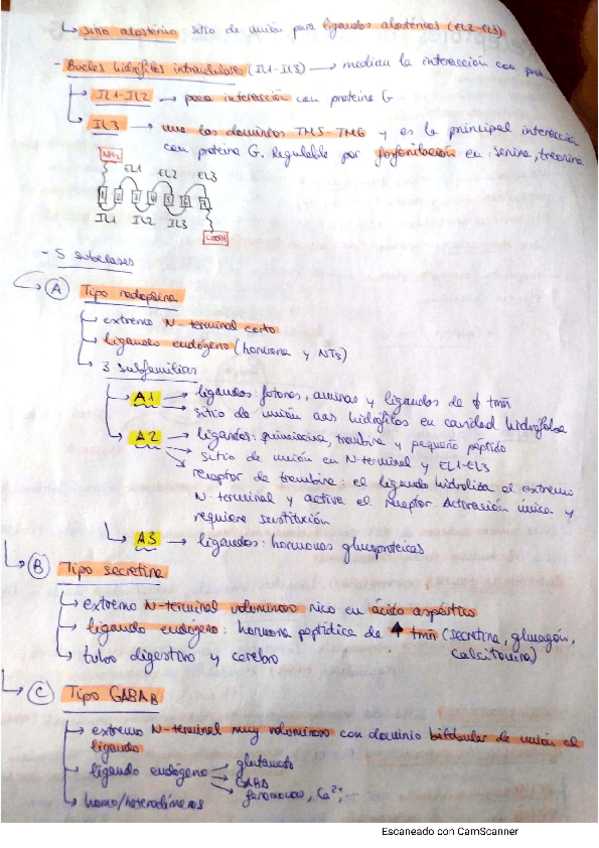 ↳ Sitio alostérico: sitio de unión para ligandos alostéricos (EL2-EL3)
- Bucles hidrófilos intracelulares (IL1-IL3) → median la interacción con
IL1-IL2 → para interacción con proteína G
IL3 → une los dominios TM5-TM6 y es la principal interacción
con proteína G. Regulable por fosforilación en: serina, treonina
NH2 EL1 EL2 EL3
1 2 3 4 5 6 7
IL1 IL2 IL3
COOH
- 5 subclases
A Tipo rodopsina
extremo N-terminal corto
ligando endógeno (hormona y NTs)
3 subfamilias
A1 → ligandos: fotones, aminas y ligandos de ↓ tmñ
→ sitio de unión aas hidrófilos en cavidad hidrófoba
A2 → ligandos: trombina y pequeño péptido
→ sitio de unión en N-terminal y EL1-EL3
receptor de trombina: el ligando hidroliza el extremo
N-terminal y activa el receptor. Activación única y
requiere sustitución
A3 → ligandos: hormonas glucoproteicas
B Tipo secretina
extremo N-terminal voluminoso rico en ácido aspártico
ligando endógeno: hormona peptídica de ↑ tmñ (secretina, glucagón,
calcitonina)
tubo digestivo y cerebro
C Tipo GABA B
extremo N-terminal muy voluminoso con dominio bilobular de unión al
ligando
ligando endógeno → glutamato
→ GABA
→ feromonas, Ca2+, ...
homo/heterodímeros
Escaneado con CamScanner